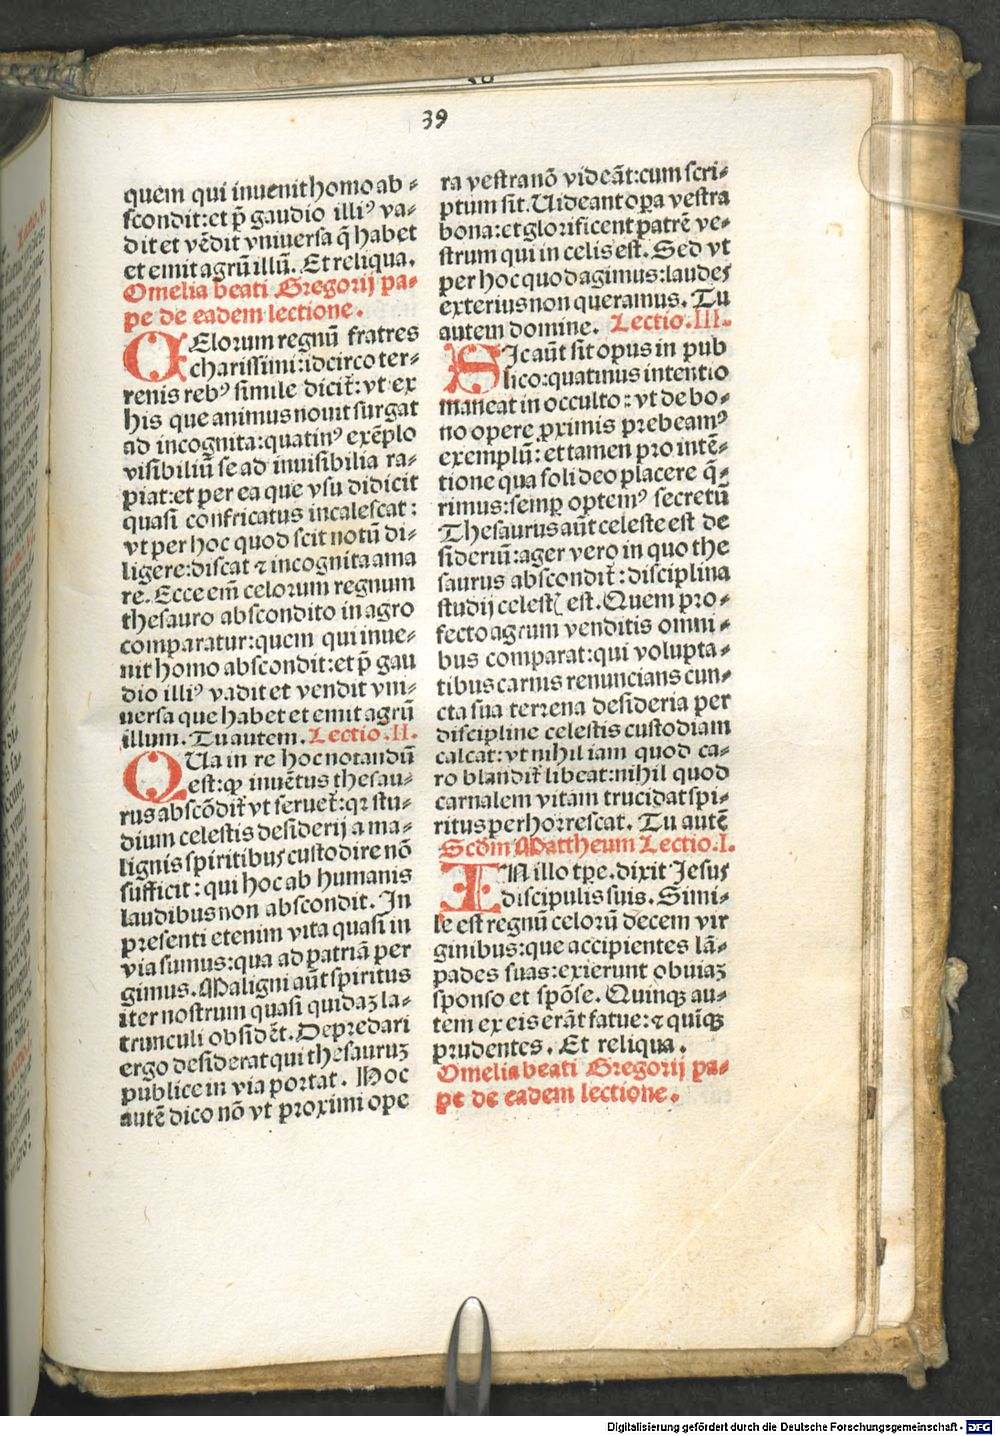 39
quem qui inuenit homo ab⸗
scondit: et p̄ gaudio illiꝰ va⸗
dit et vēdit vniuersa q̄ habet
et emit agrū illū. Et reliqua.
Omelia beati Gregorij pa⸗
pe de eadem lectione.
CElorum regnū fratres
charissimi: idcirco ter⸗
renis rebꝰ simile dicit̄: vt ex
his que animus nouit surgat
ad incognita: quatinꝰ exēplo
visibiliū se ad inuisibilia ra⸗
piat: et per ea que vsu didicit
quasi confricatus incalescat:
vt per hoc quod scit notū di⸗
ligere: discat ⁊ incognita ama
re. Ecce em̄ celorum regnum
thesauro abscondito in agro
comparatur: quem qui inue⸗
nit homo abscondit: et p̄ gau
dio illiꝰ vadit et vendit vni⸗
uersa que habet et emit agrū
illum. Tu autem. Lectio.II.
QUa in re hoc notandū
est: ꝙ inuētus thesau⸗
rus abscōdit̄ vt seruet̄: qꝛ stu⸗
dium celestis desiderij a ma⸗
lignis spiritibus custodire nō
sufficit: qui hoc ab humanis
laudibus non abscondit. In
presenti etenim vita quasi in
via sumus: qua ad patriā per
gimus. Maligni aūt spiritus
iter nostrum quasi quidaꝫ la⸗
trunculi obsidēt. Depredari
ergo desiderat qui thesauruꝫ
publice in via portat. Hoc
autē dico nō vt proximi ope
ra vestra nō videāt: cum scri⸗
ptum sit. Uideant oꝑa vestra
bona: et glorificent patrē ve⸗
strum qui in celis est. Sed vt
per hoc quod agimus: laudes
exterius non queramus. Tu
autem domine. Lectio.III.
SIc aūt sit opus in pub
lico: quatinus intentio
maneat in occulto: vt de bo⸗
no opere ꝓximis prebeamꝰ
exemplū: et tamen pro intē⸗
tione qua soli deo placere q̄⸗
rimus: semꝑ optemꝰ secretū
Thesaurus aūt celeste est de
sideriū: ager vero in quo the
saurus abscondit̄: disciplina
studij celestꝭ est. Quem pro⸗
fecto agrum venditis omni⸗
bus comparat: qui volupta⸗
tibus carnis renuncians cun⸗
cta sua terrena desideria per
discipline celestis custodiam
calcat: vt nihil iam quod ca⸗
ro blandit̄ libeat: nihil quod
carnalem vitam trucidat spi⸗
ritus perhorrescat. Tu autē
Scdm̄ Mattheum Lectio.I.
IN illo tꝑe. dixit Jesus
discipulis suis. Simi⸗
le est regnū celorū decem vir
ginibus: que accipientes lā⸗
pades suas: exierunt obuiaꝫ
sponso et spōse. Quinqꝫ au⸗
tem ex eis erāt fatue: ⁊ quīqꝫ
prudentes. Et reliqua.
Omelia beati Gregorij pa⸗
pe de eadem lectione.
Digitalisierung gefördert durch die Deutsche Forschungsgemeinschaft - DFG